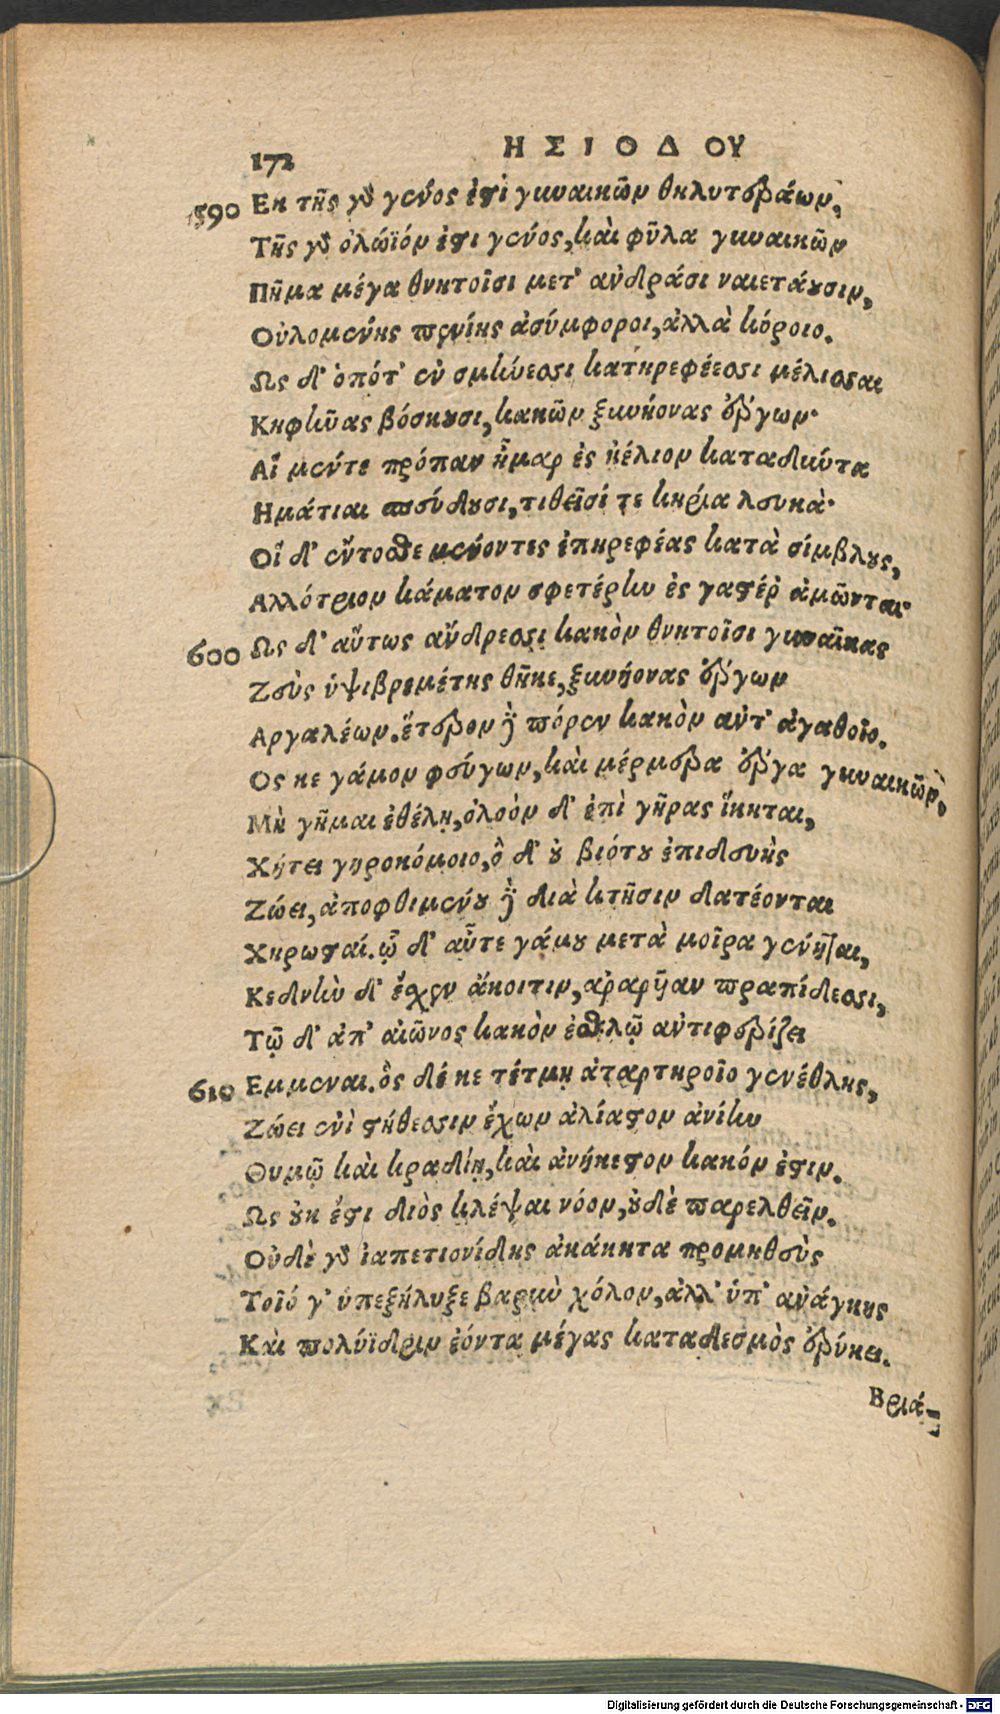 172 ΗΣΙΟΔΟΥ
590 Εκ τῆς γὸ γένος ἐστὶ γυναικῶν θηλυτεράων,
Τῆς γὸ ὀλώϊόν ἐστι γένος, καὶ φῦλα γυναικῶν
Πῆμα μέγα θνητοῖσι μετ' ἀνδράσι ναιετάουσιν,
Οὐλομένης πενίης ἀσύμφοροι, ἀλλὰ κόροιο.
Ως δ' ὁπότ' ἐν σμήνεσσι κατηρεφέεσσι μέλισσαι
Κηφῆνας βόσκουσι, κακῶν ξυνήονας ἔργων·
Αἵ μέντε πρόπαν ἦμαρ ἐς ἠέλιον καταδύντα
Ημάτιαι σπεύδουσι, τιθεῖσί τε κηρία λευκὰ·
Οἵ δ' ἔντοσθε μένοντες ἐπηρεφέας κατὰ σίμβλους,
Αλλότριον κάματον σφετέρην ἐς γαστέρ' ἀμῶνται·
600 Ως δ' αὔτως ἄνδρεσσι κακὸν θνητοῖσι γυναῖκας
Ζεὺς ὑψιβρεμέτης θῆκε, ξυνήονας ἔργων
Αργαλέων. ἕτερον δὲ πόρεν κακὸν ἀντ' ἀγαθοῖο.
Ος κε γάμον φεύγων, καὶ μέρμερα ἔργα γυναικῶν,
Μὴ γῆμαι ἐθέλῃ, ὀλοὸν δ' ἐπὶ γῆρας ἵκηται,
Χήτει γηροκόμοιο, ὃ δ' οὐ βιότου ἐπιδευὴς
Ζώει, ἀποφθιμένου δὲ διὰ κτῆσιν δατέονται
Χηρωσταί. ᾧ δ' αὖτε γάμου μετὰ μοῖρα γένηται,
Κεδνὴν δ' ἔσχεν ἄκοιτιν, ἀραρῆαν πραπίδεσσι,
Τῷ δ' ἀπ' αἰῶνος κακὸν ἐσθλῷ ἀντιφερίζει
610 Εμμεναι. ὃς δέ κε τέτμῃ ἀταρτηροῖο γενέθλης,
Ζώει ἐνὶ στήθεσσιν ἔχων ἀλίαστον ἀνίην
Θυμῷ καὶ κραδίῃ, καὶ ἀνήκεστον κακόν ἐστιν.
Ως οὐκ ἔστι διὸς κλέψαι νόον, οὐδὲ παρελθεῖν.
Οὐδὲ γὸ ἰαπετιονίδης ἀκάκητα προμηθεὺς
Τοῖό γ' ὑπεξήλυξε βαρὺν χόλον, ἀλλ' ὑπ' ἀνάγκης
Καὶ πολύϊδριν ἐόντα μέγας καταδεσμὸς ἐρύκει.
Βριά-
Digitalisierung gefördert durch die Deutsche Forschungsgemeinschaft - DFG